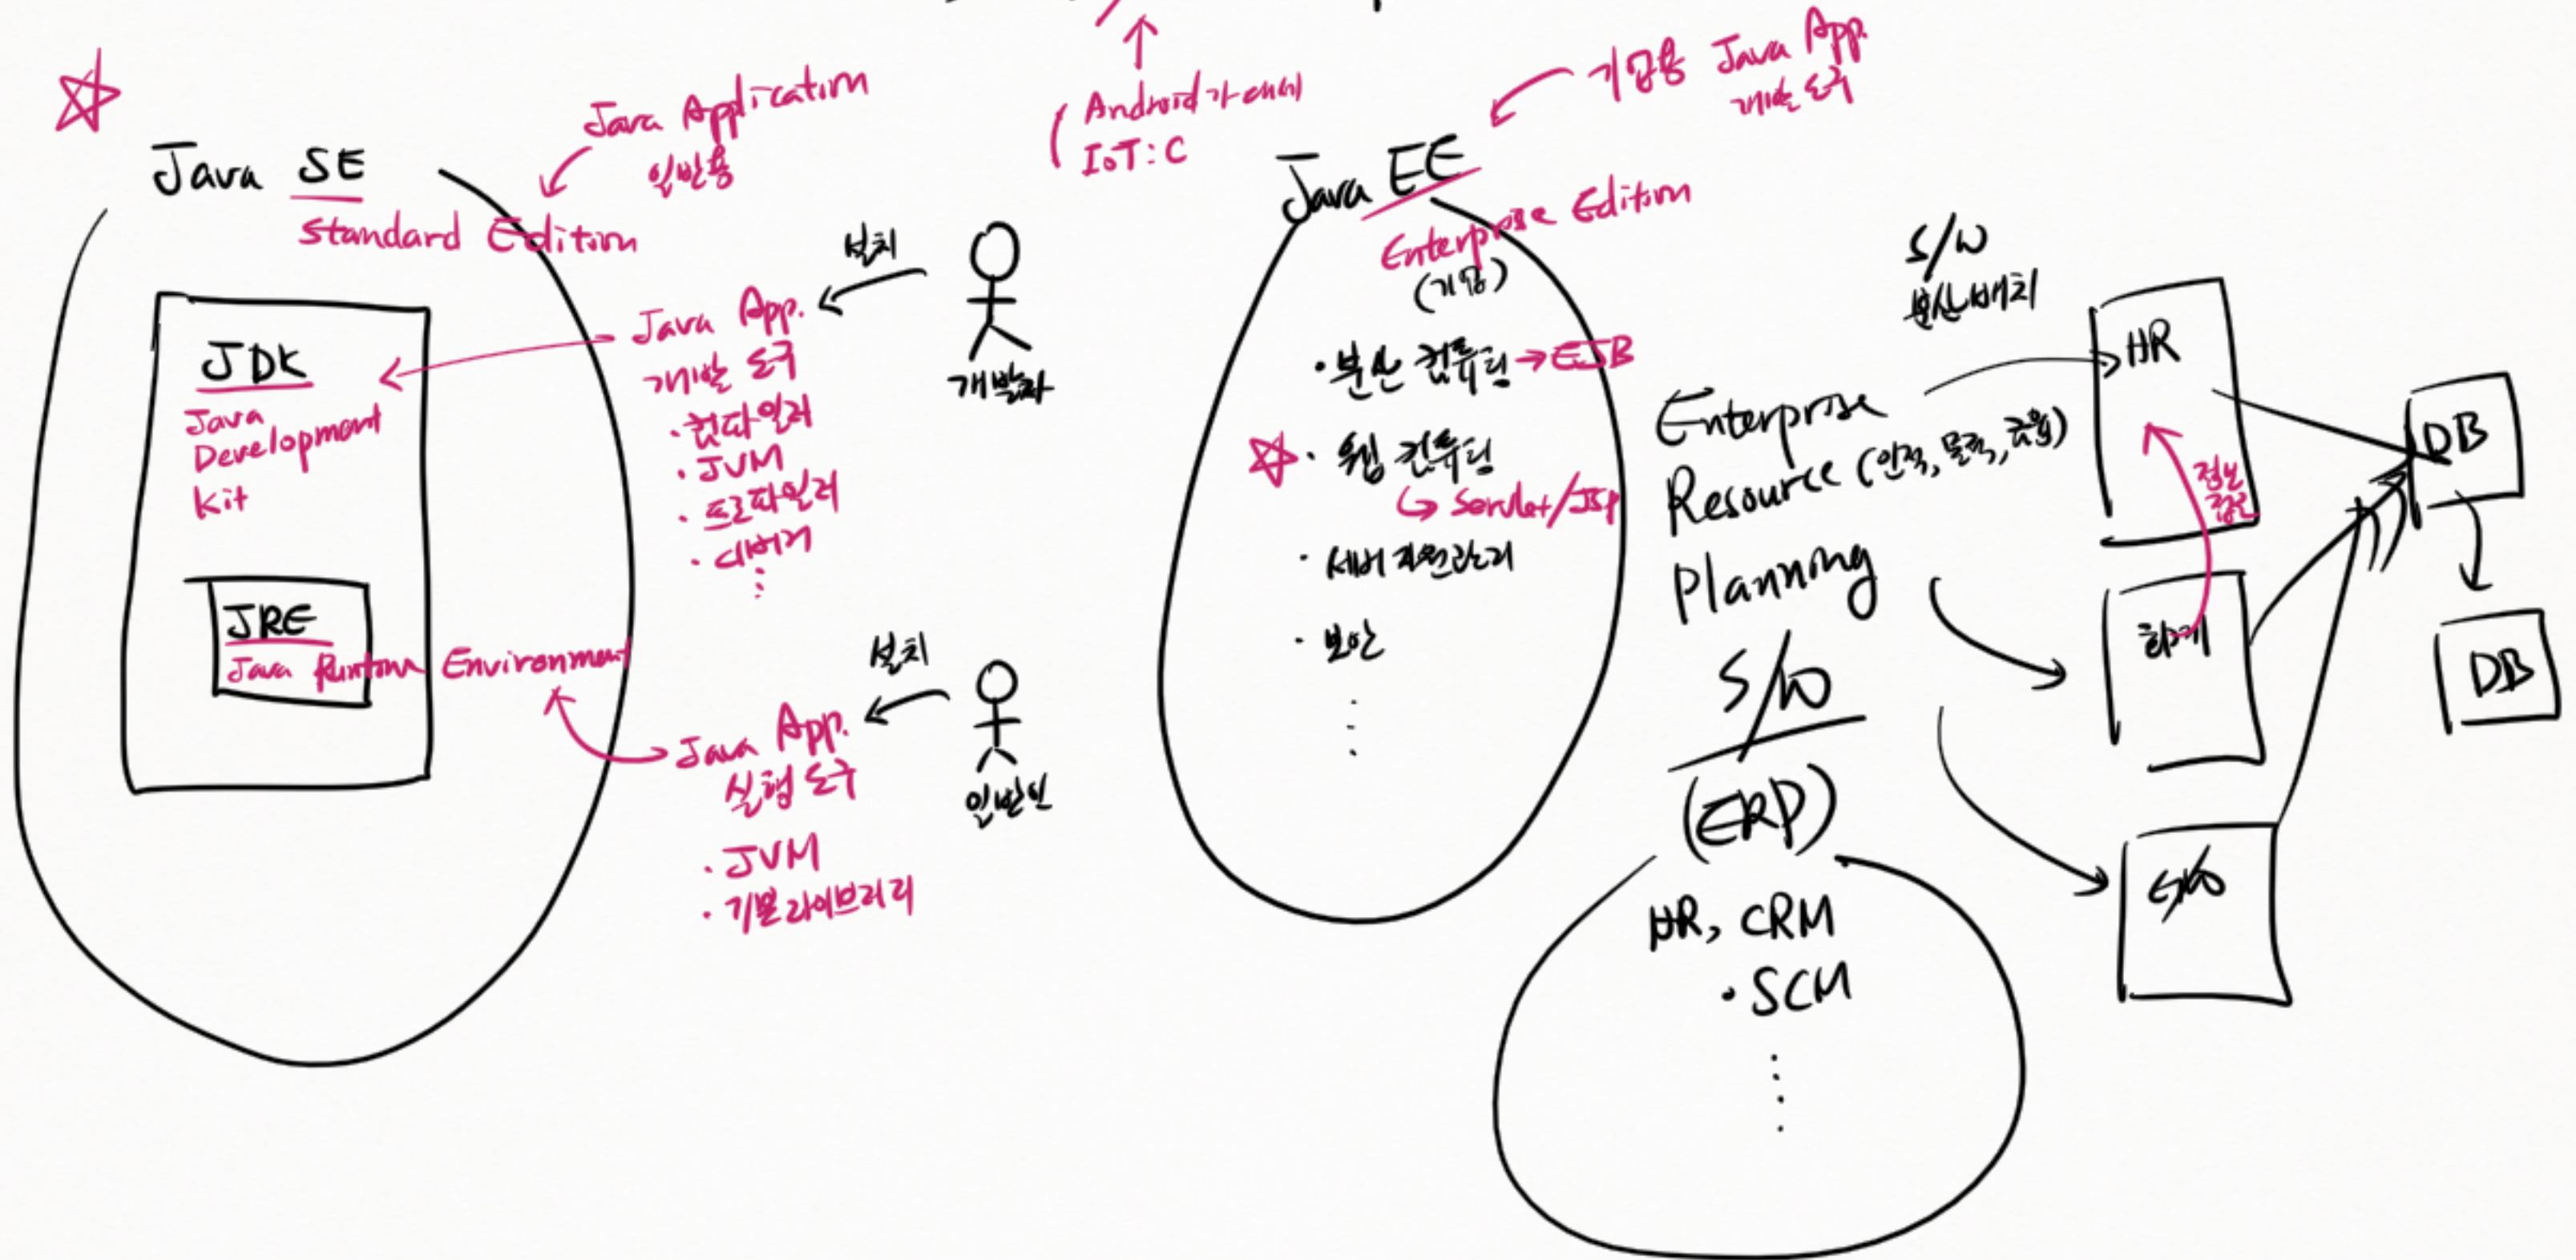 Java SE
Standard Edition
Java Application
일반용
JDK
Java
Development
Kit
JRE
Java Runtime Environment
Java App.
개발 도구
· 컴파일러
· JVM
· 프로파일러
· 디버거
설치
개발자
Java App.
실행 도구
· JVM
· 기본 라이브러리
설치
일반인
Android가 대체
IoT : C
Java EE
Enterprise Edition
(기업)
기업용 Java App.
개발 도구
· 분산 컴퓨팅 → EJB
· 웹 컴퓨팅
↳ Servlet/JSP
· 서버 자원관리
· 보안
S/W
분산배치
Enterprise
Resource (인적, 물적, 금융)
Planning
S/W
(ERP)
HR, CRM
· SCM
HR
정보
회계
DB
DB